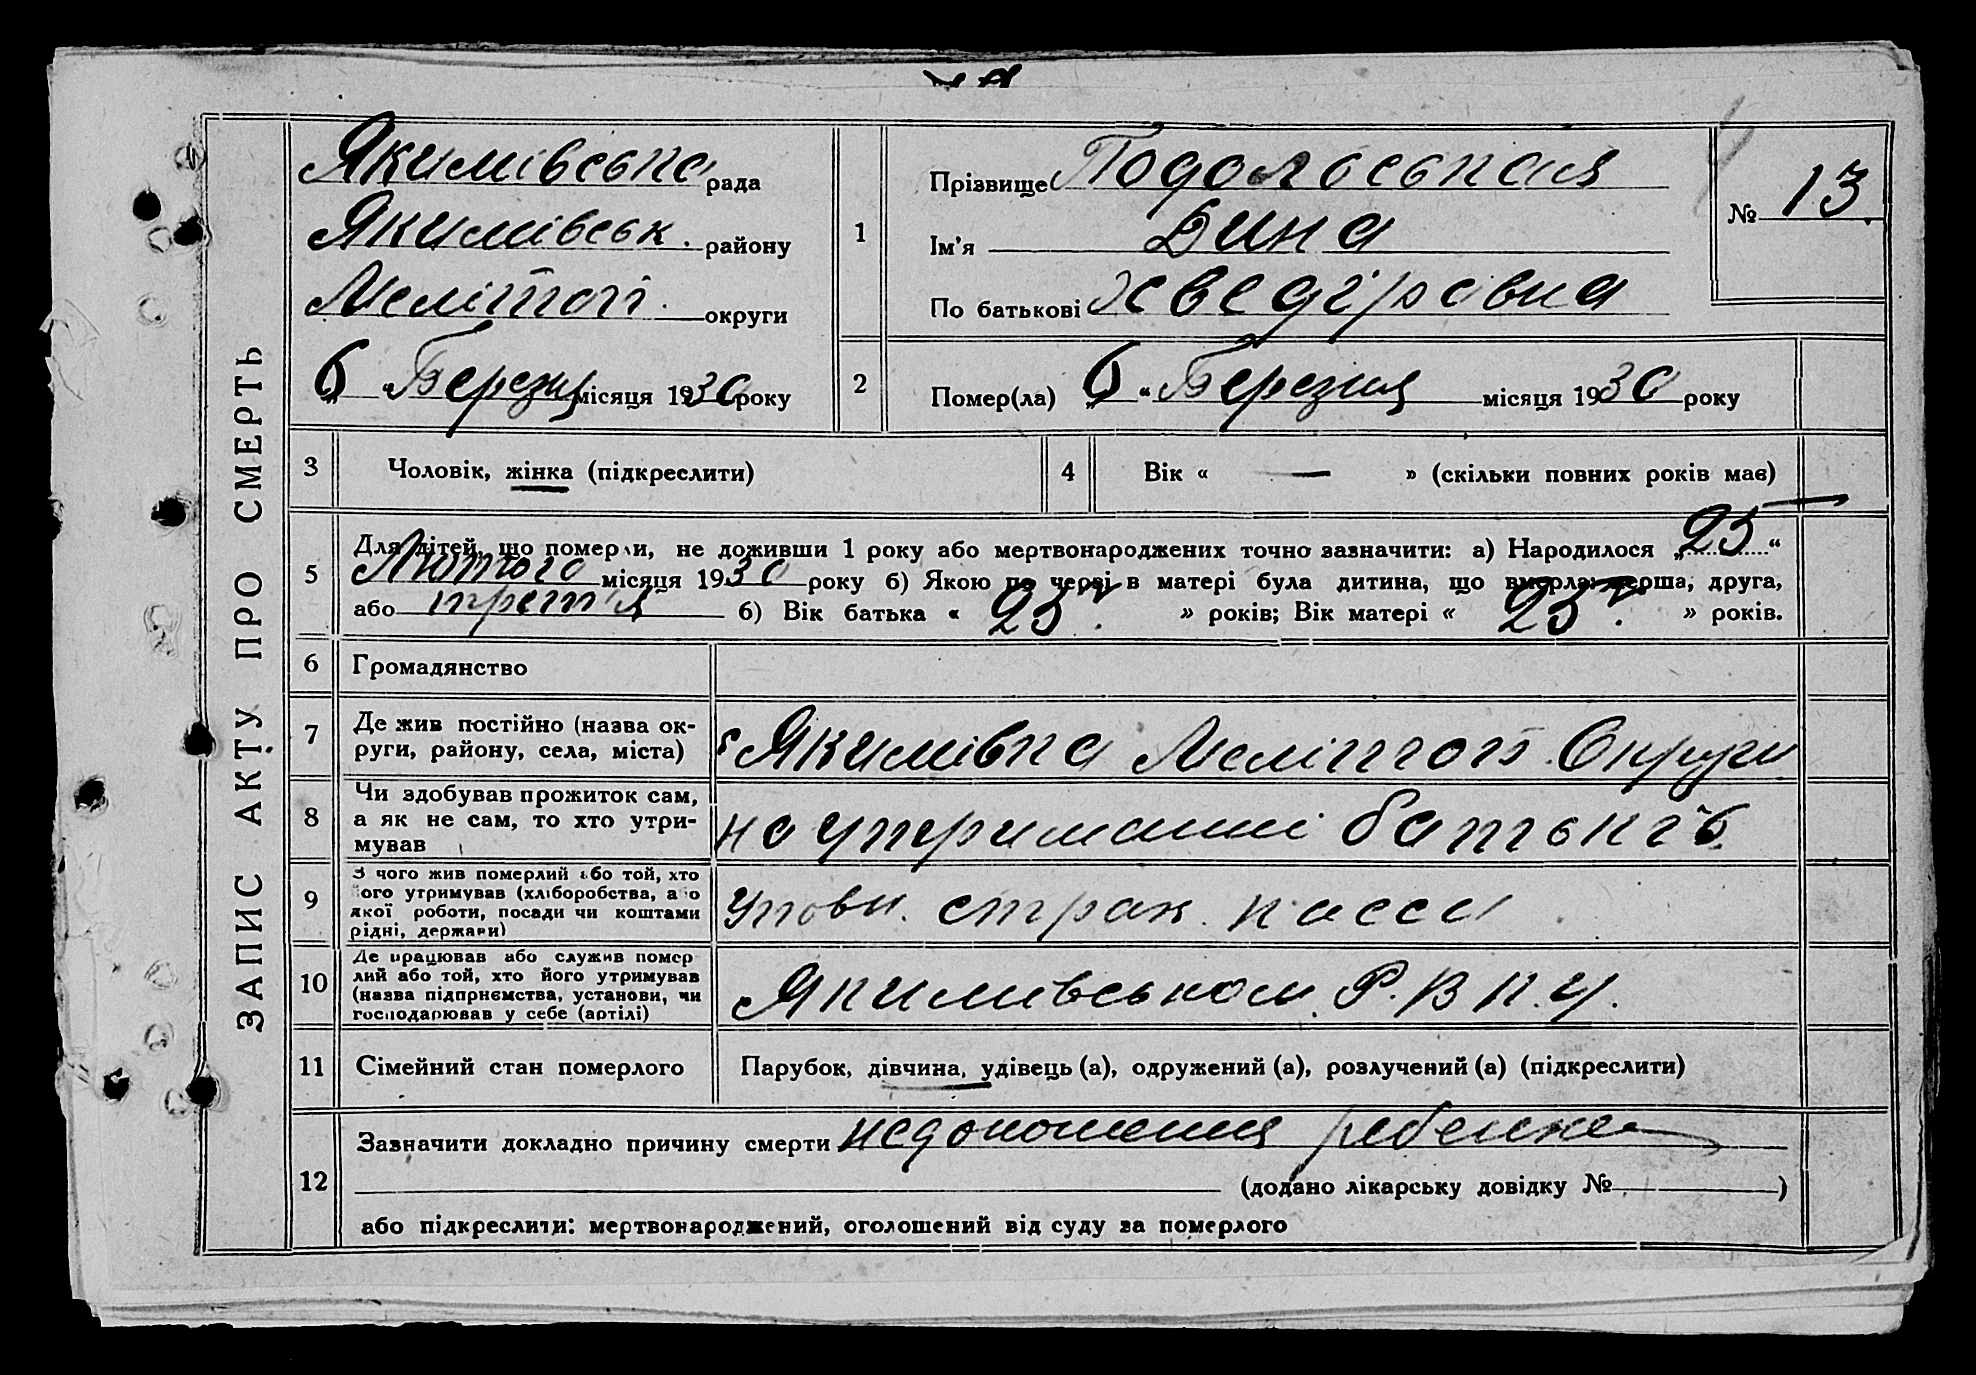 ЗАПИС АКТУ ПРО СМЕРТЬ
Якимівська рада
Якимівськ. району
Меліtоп. округи
„6“ Березня місяця 1930 року
1
Прізвище Подольськая
Ім'я Дина
По батькові
№ 13.
2
Помер(ла) „6“ Березня місяця 1930 року
3
Чоловік, жінка (підкреслити)
4
Вік « — » (скільки повних років має)
5
Для дітей, що померли, не доживши 1 року або мертвонароджених точно зазначити: а) Народилося „25“
Лютого місяця 1930 року б) Якою по черзі в матері була дитина, що вмерла: перша, друга,
або третія б) Вік батька « 23 » років; Вік матері « 23 » років.
6
Громадянство
7
Де жив постійно (назва ок-
руги, району, села, міста)
с Якимівка Мелітоп. Округи
8
Чи здобував прожиток сам,
а як не сам, то хто утри-
мував
на утриманні батьків
9
З чого жив померлий або той, хто
його утримував (хліборобства, або
якої роботи, посади чи коштами
рідні, держави)
Уповн. страх. касси
10
Де працював або служив помер
лий або той, хто його утримував
(назва підприємства, установи, чи
господарював у себе (артілі)
Якимивськом. Р.В.К.У.
11
Сімейний стан померлого
Парубок, дівчина, удівець (а), одружений (а), розлучений (а) (підкреслити)
12
Зазначити докладно причину смерти недоношения ребенка
(додано лікарську довідку № )
або підкреслити: мертвонароджений, оголошений від суду за померлого